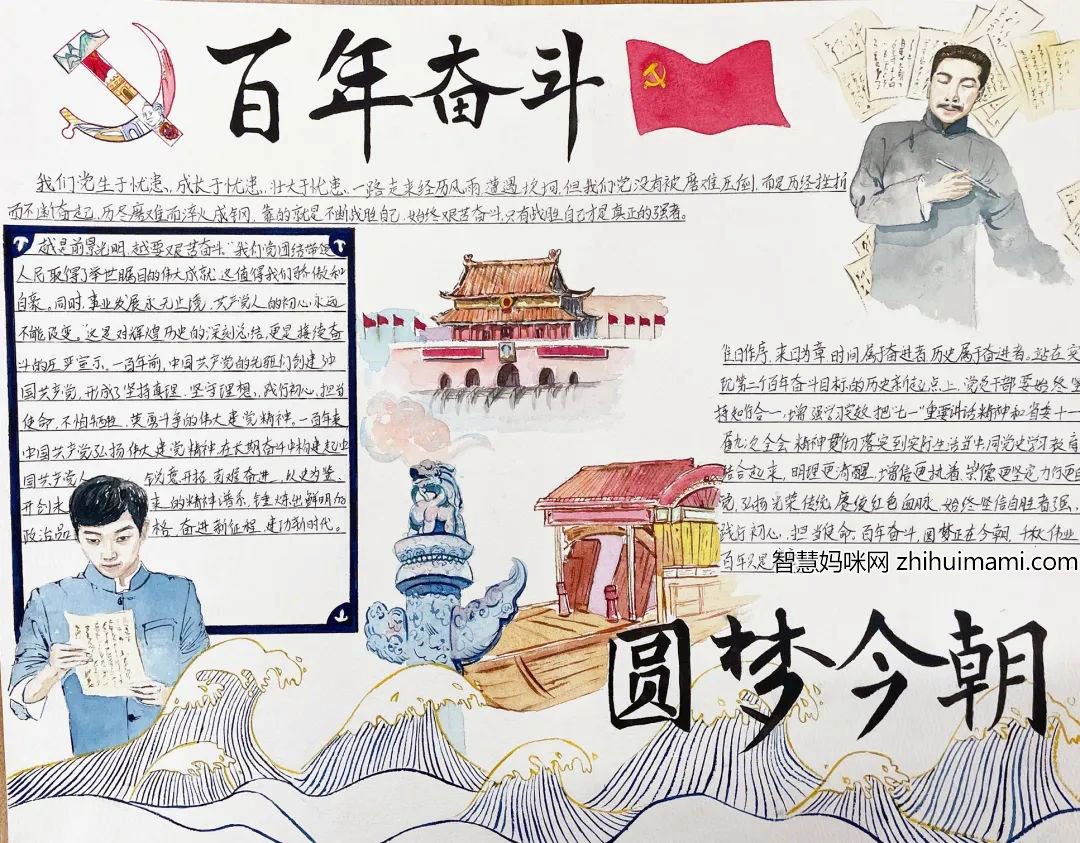 百年奋斗
我们党生于忧患、成长于忧患、壮大于忧患，一路走来经历风雨、遭遇坎坷，但我们党没有被磨难压倒，而是历经挫折
而不断奋起，历尽磨难而淬火成钢，靠的就是不断战胜自己，始终艰苦奋斗，只有战胜自己才是真正的强者。
越是前景光明，越要艰苦奋斗“我们党团结带领
人民取得了举世瞩目的伟大成就，这值得我们骄傲和
自豪。同时，事业发展永无止境，共产党人的初心永远
不能改变。”这是对辉煌历史的深刻总结，更是接续奋
斗的庄严宣示。一百年前，中国共产党的先驱们创建中
国共产党，形成了坚持真理、坚守理想，践行初心、担当
使命，不怕牺牲、英勇斗争的伟大建党精神。一百年来
中国共产党弘扬伟大建党精神，在长期奋斗中构建起中
国共产党人 锐意开拓，克难奋进，以史为鉴、
开创未 来的精神谱系，锤炼出鲜明的
政治品 格，奋进新征程，建功新时代。
昨日作序，来日为章，时间属于奋进者，历史属于奋进者。站在实
现第二个百年奋斗目标的历史新起点上，党员干部要始终坚
持知行合一，增强学习实效，把“七一”重要讲话精神和省委十一
届九次全会精神贯彻落实到实际生活当中，同党史学习教育
结合起来，明理更清醒、增信更执着、崇德更坚定、力行更自
觉，弘扬光荣传统、赓续红色血脉，始终坚信自胜者强，
践行初心，担当使命，百年奋斗，圆梦正在今朝，千秋伟业
百年只是
智慧妈咪网 zhihuimami.com
圆梦今朝